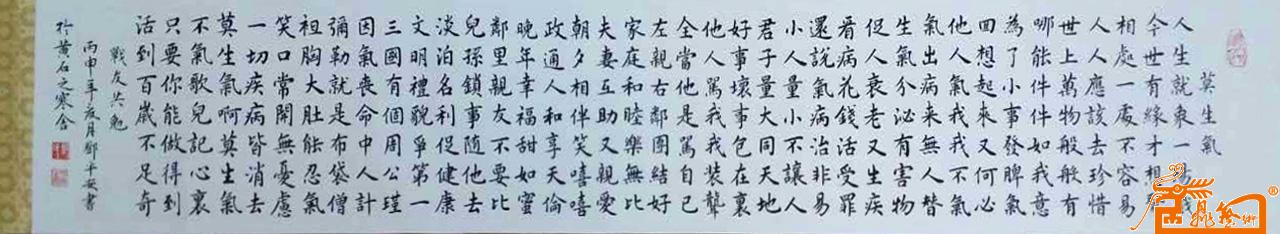 莫生氣
人生就象一場戲
今世有緣才想聚
相處一處不容易
人人應該去珍惜
世上萬物般般有
哪能件件如我意
為了小事發脾氣
回想起來又何必
他人氣我我不氣
氣出病來無人替
生氣分泌有害物
促人衰老又生疾
看病花錢活受罪
還說氣病治非易
小人量小不讓人
君子量大同天地
好事壞事包在裏
他人罵我我裝聾
全當他是罵自己
左親右鄰團結好
家庭和睦樂無比
夫妻互助又親愛
朝夕相伴笑嘻嘻
政通人和享天倫
晚年幸福甜如蜜
鄰里親友不要比
兒孫鎖事隨他去
淡泊名利促健康
文明禮貌爭第一
三國有個周公瑾
因氣喪命中人計
彌勒就是布袋僧
袒胸大肚能忍氣
笑口常開無憂慮
一切疾病皆消去
莫生氣啊莫生氣
不氣歌兒記心裏
只要你能做得到
活到百歲不足奇
戰友共勉
丙申年亥月鄧平安書
於黃石之寒舍